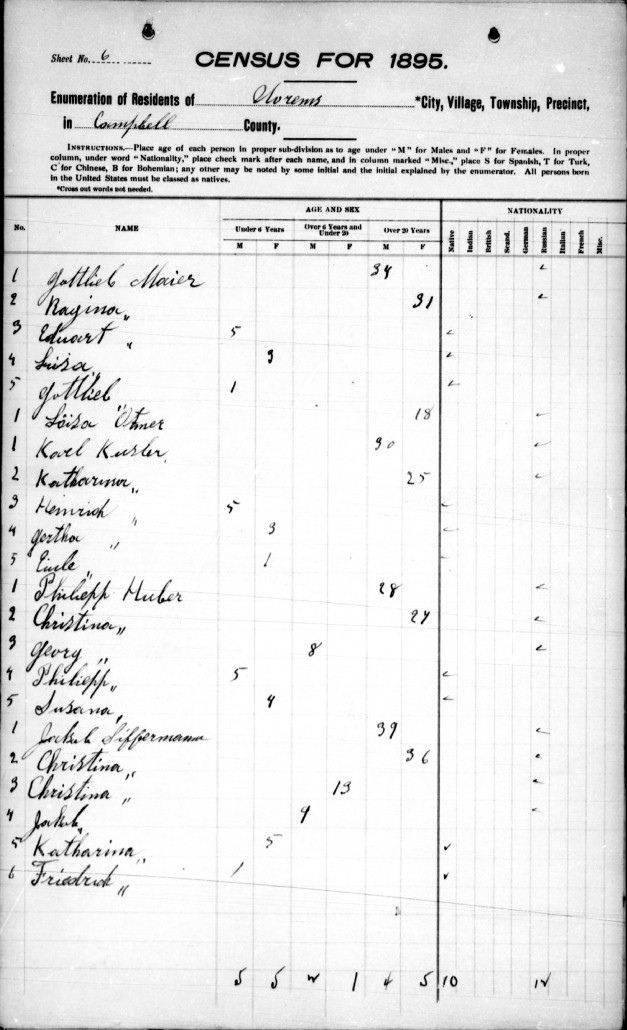 Sheet No. 6
CENSUS FOR 1895.
Enumeration of Residents of Worems *City, Village, Township, Precinct,
in Campbell County.
INSTRUCTIONS.—Place age of each person in proper sub-division as to age under "M" for Males and "F" for Females. In proper
column, under word "Nationality," place check mark after each name, and in column marked "Misc.," place S for Spanish, T for Turk,
C for Chinese, B for Bohemian; any other may be noted by some initial and the initial explained by the enumerator. All persons born
in the United States must be classed as natives.
*Cross out words not needed.
No. NAME AGE AND SEX NATIONALITY
Under 6 Years Over 6 Years and Under 20 Over 20 Years
M F M F M F Native Indian British Scand. German Russian Italian French Misc.
1 Gottlieb Maier 34 ✓
2 Ragina " 31 ✓
3 Eduart " 5 ✓
4 Luisa " 3 ✓
5 Gottlieb " 1 ✓
1 Löisa Otmer 18 ✓
1 Karl Kusler 30 ✓
2 Katharina " 25 ✓
3 Heinrich " 5 ✓
4 Gertha " 3 ✓
5 " 1
1 Philiepp Huber 28 ✓
2 Christina " 27 ✓
3 Georg " 8 ✓
4 Philiepp " 5 ✓
5 Susana " 4 ✓
1 Jakob Siffermann 39 ✓
2 Christina " 36 ✓
3 Christina " 13 ✓
4 Jakob " 9 ✓
5 Katharina " 5 ✓
6 Friedrich " 1 ✓
5 5 2 1 4 5 10 12